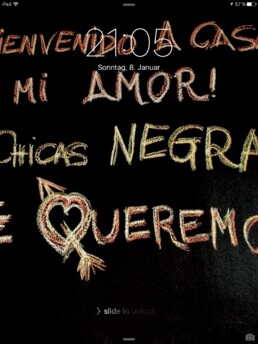 iPad
57 %
21:05
IENVENIDO A CASA
Sonntag, 8. Januar
MI AMOR!
CHICAS NEGRA
E QUEREMO
slide to unlock